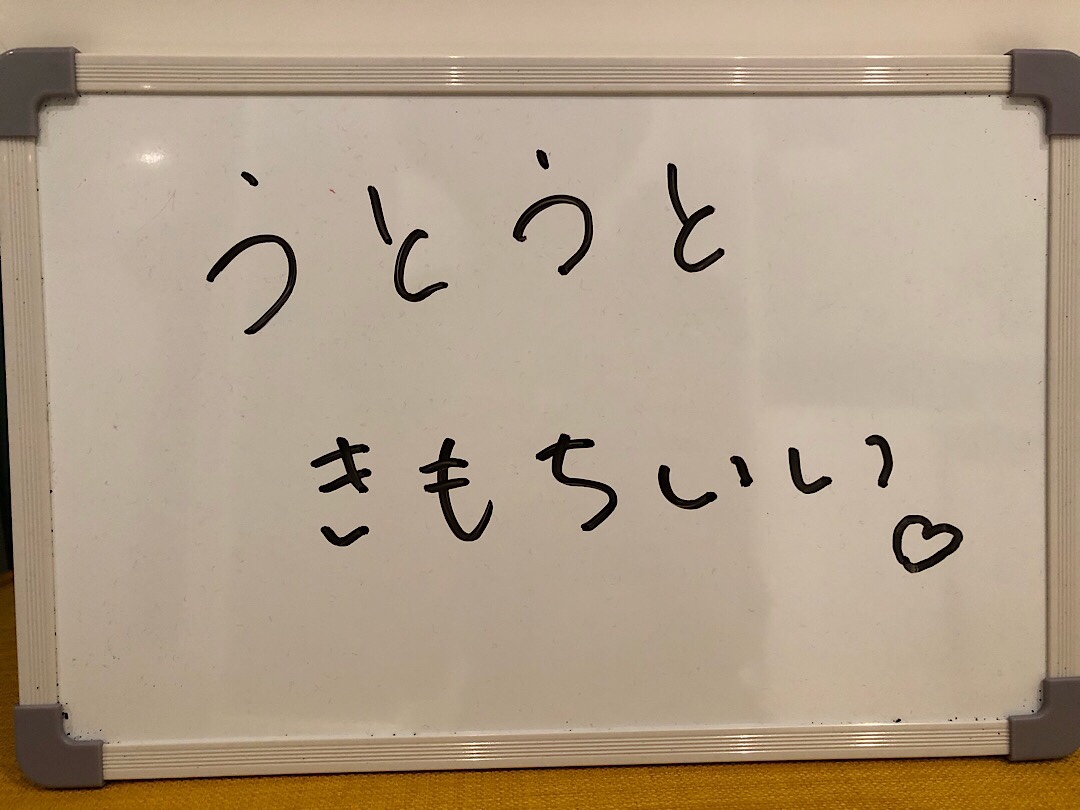 うとうと
きもちいい♡